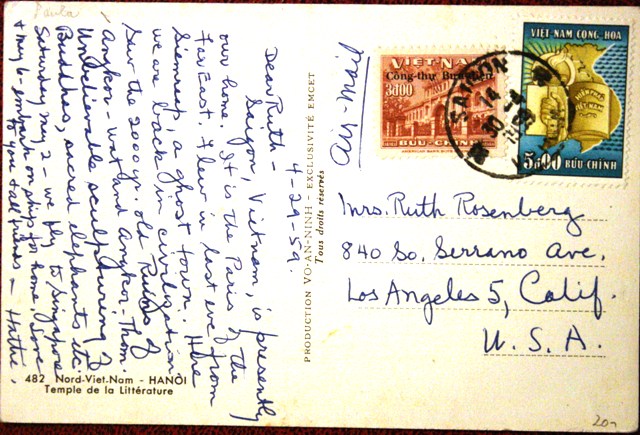 Paula
4-29-59.
Dear Ruth -
Saigon, Vietnam, is presently
our home. It is the Paris of the
Far East. Flew in last eve from
Siemreap, a ghost town. Here
we are back in civilization.
Saw the 2000 yr. old Ruins of
Angkor-Wat and Angkor-Thom.
Unbelievable sculpturing of
Buddhas, sacred elephants etc.
Saturday May 2 - we fly to Singapore
+ May 6 - embark on ship for home. Love
to you + all friends -
482 Nord-Viet-Nam - HANÔI
Temple de la Littérature
PRODUCTION VO-AN-NINH - EXCLUSIVITÉ EMCET
Tous droits réservés
air-mail
VIET-NAM
Công-thự Bưu-điện
3đ00
BƯU-CHÍNH
SAIGON
VIỆT-NAM CỘNG-HÒA
5đ00 BƯU CHÍNH
Mrs. Ruth Rosenberg
840 So. Serrano Ave.
Los Angeles 5, Calif.
U.S.A.
20-